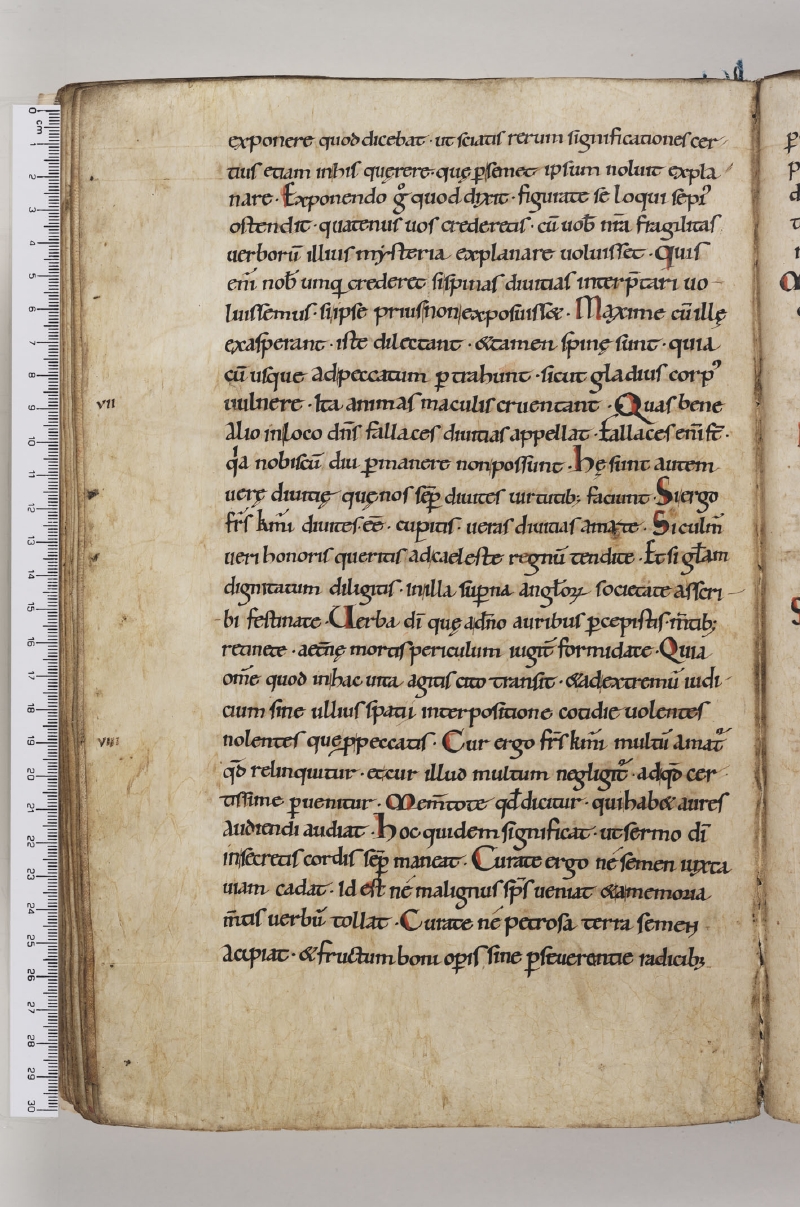 exponere quod dicebat · ut sciatis rerum significationes cer
tius etiam in his quęrere · quę ꝑ semet ipsum noluit expla
nare · Exponendo gͦ quod dixit · figurate se loqui sepiꝰ
ostendit · quatenus uos crederetis · cū uob̄ nr̄a fragilitas
uerborū illius mysteria explanare uoluisset · Quis
em̄ nob̄ umq̨ crederet si spinas diuitias interp̄tari uo
luissemus · si ipse prius non exposuiss& · Maxime cū illę
exasperant · iste dilectant · & tamen spinę sunt · quia
cū usque ad peccatum ꝑtrahunt · sicut gladius corpꝰ
VII
uulnere · Ita animas maculis cruentant · Quas bene
Alio in loco dn̄s fallaces diuitias appellat · fallaces em̄ st̄ ·
q̄a nobiscū diu ꝑmanere non possunt · Hę sunt autem
uerę diuitię quę nos sēp diuites uirtutib; faciunt · Si ergo
fr̄s km̄i diuites · eē · cupitis · ueras diuitias amate · Si culm̄
ueri honoris queritis ad caeleste regnū tendite · Et si gl̄am
dignitatum diligitis · in illa sup̄na angl̄oꝝ societate asscri
bi festinate · Uerba dī quę a dn̄o auribus ꝑcepistis · m̄tib;
retinete · aet̄nę mortis periculum iugit̄ formidate · Quia
om̄e quod in hac uita agitis cito transit · & ad extremū iudi
cium sine ullius spatii interpositione cotidie uolentes
VIII
nolentes que ꝓpeccatis · Cur ergo fr̄s km̄i multū amat᷑
qd̄ relinquitur · et cur illud multum negligit᷑ · ad qd̄ cer
tissime ꝑuenitur · Mem̄tote qd̄ dicitur · qui hab& aures
Audiendi audiat · Hoc quidem significat · ut sermo dī
in secretis cordis sēp maneat · Curate ergo ne semen iuxta
uiam cadat · Id est ne malignus sp̄s ueniat & a memoria
m̄tis uerbū tollat · Curate ne petrosa terra semen
Accipiat · & fructum boni opis̄ sine ꝑseuerantie radicib;